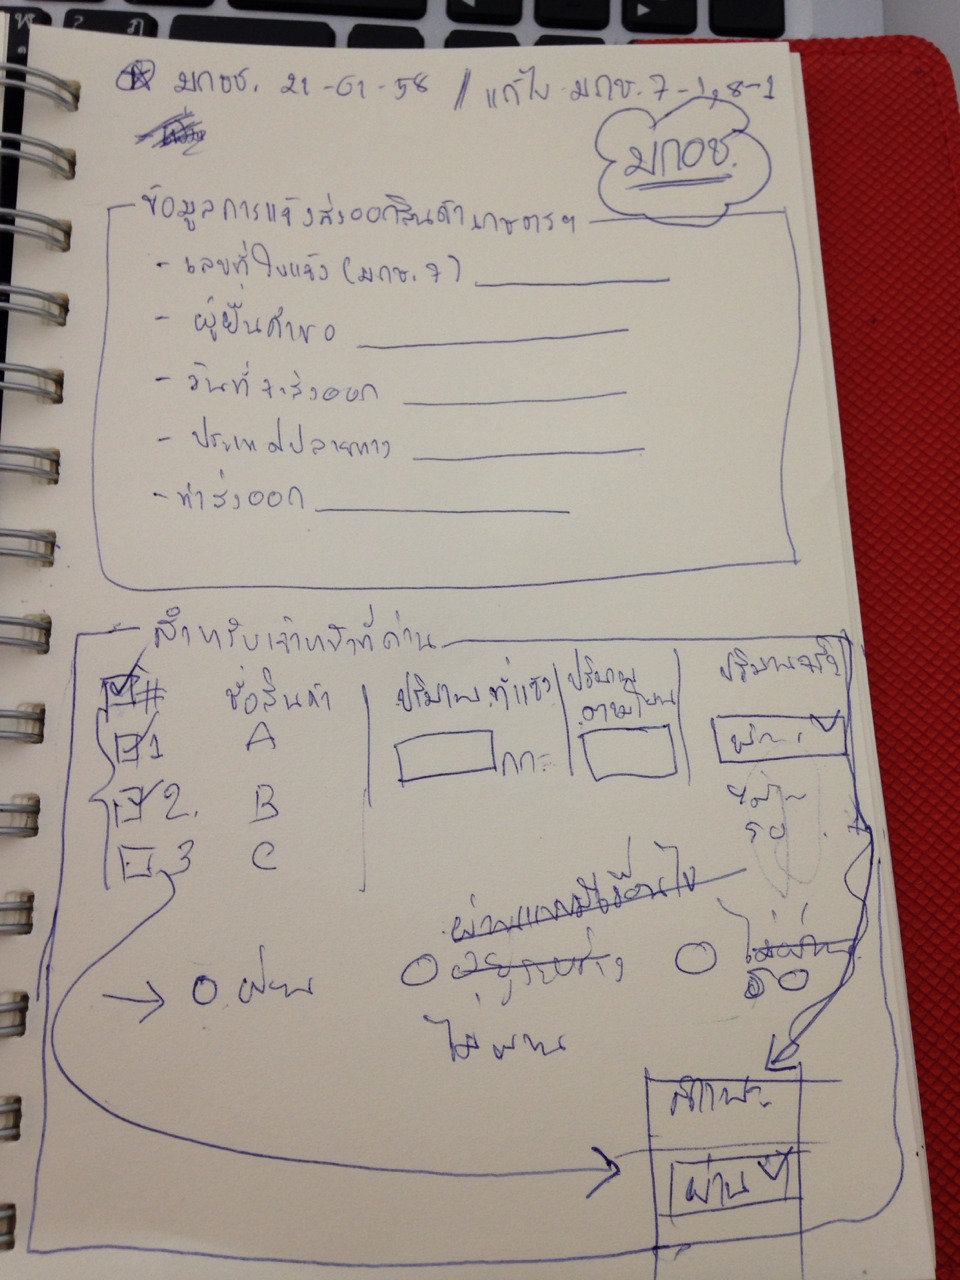 มกอช. 21-01-58 // แก้ไข มกษ.7-1,8-1
มกอช.
ข้อมูลการแจ้งส่งออกสินค้าเกษตรฯ
- เลขที่ใบแจ้ง (มกษ.7)
- ผู้ยื่นคำขอ
- วันที่จะส่งออก
- ประเทศปลายทาง
- ท่าส่งออก
สำหรับเจ้าหน้าที่ด่าน
# ชื่อสินค้า ปริมาณที่แจ้ง ปริมาณ ปริมาณจริง
1 A กก. ผ่าน
2. B ไม่ผ่าน
3 C รอ
ผ่านแบบมีเงื่อนไข
ผ่าน อยู่ระหว่าง ไม่ผ่าน
ไม่ผ่าน รอ
สถานะ
ผ่าน